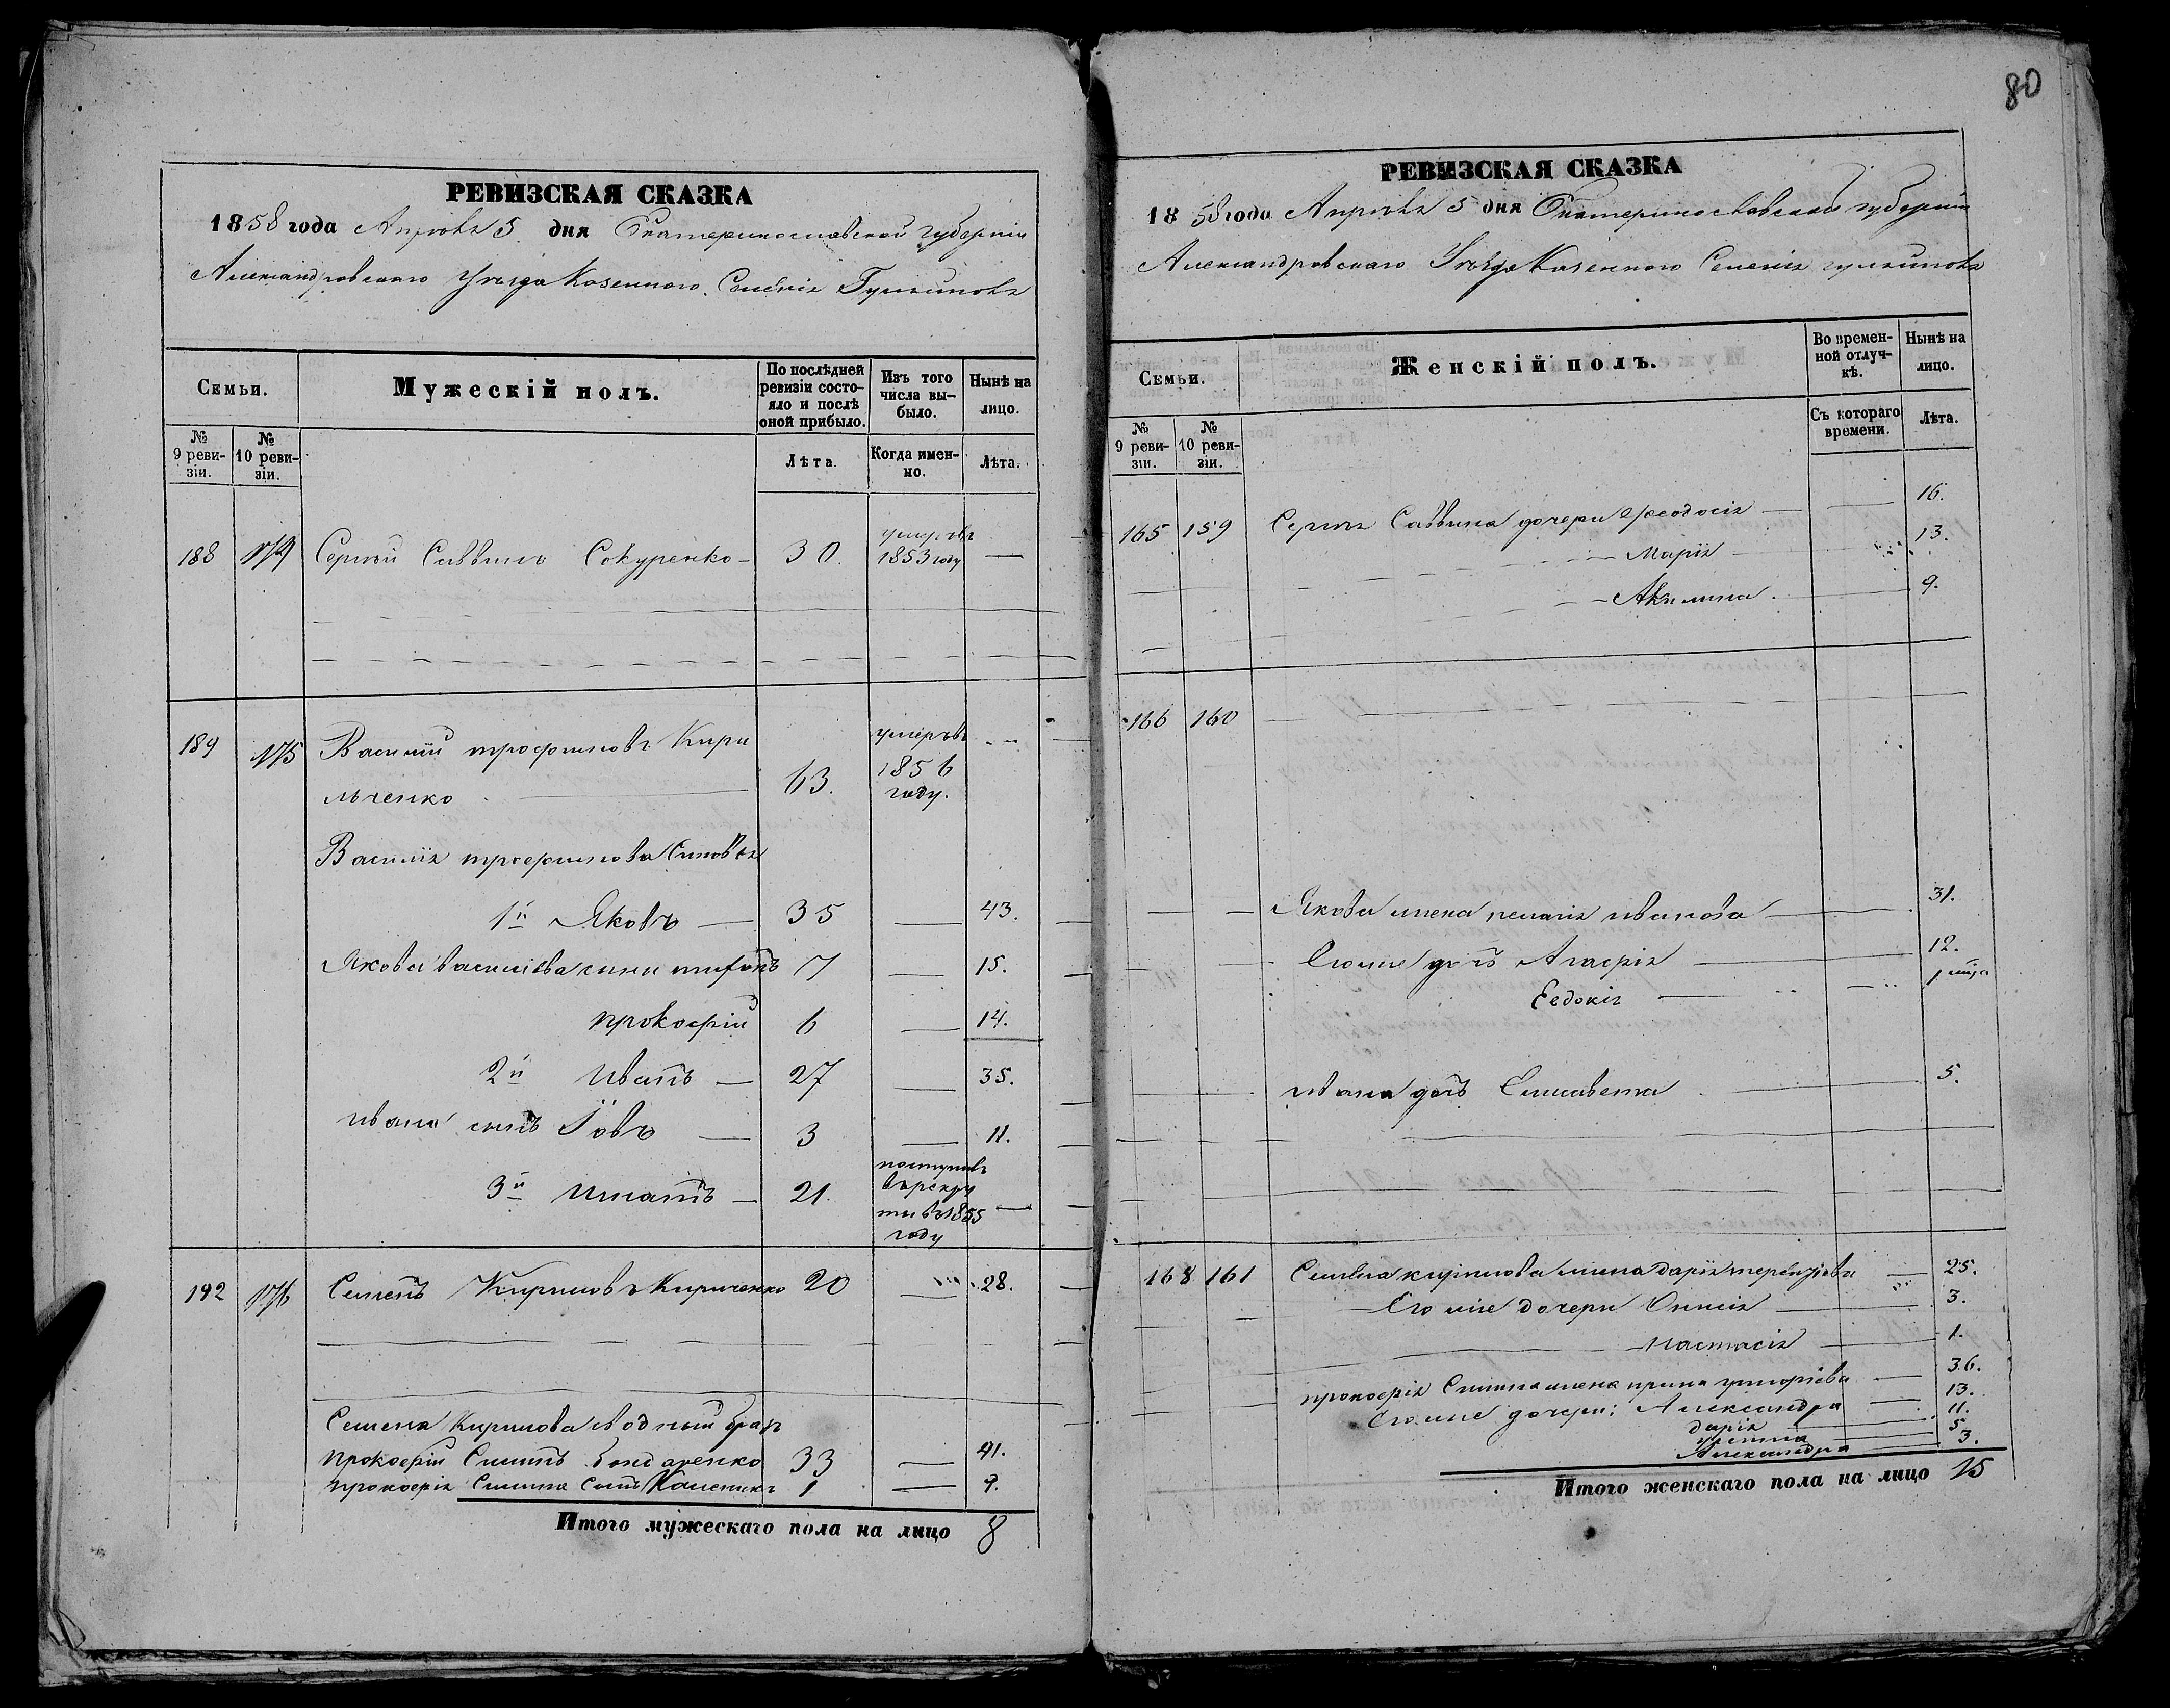 80
РЕВИЗСКАЯ СКАЗКА
1858 года Апреля 5 дня Екатеринославской губернии
Александровскаго Уезда Казеннаго Селения
Семьи.
Мужескій полъ.
По послѣдней ревизіи состояло и послѣ оной прибыло.
Изъ того числа выбыло.
Нынѣ на лицо.
№ 9 ревизіи.
№ 10 ревизіи.
Лѣта.
Когда именно.
Лѣта.
188 174 Сергѣй Саввинъ Сокуренко 30. умеръ въ 1853 году —
189 175 Василий трофимовъ Кири
льченко 63. умеръ въ 1856 году.
Василія трофимова Синовья
1й Яковъ — 35 — 43.
Якова василіева сини 7 — 15.
прокофий 6 — 14.
2й Иванъ — 27 — 35.
ивана синъ Іовъ — 3 — 11.
3й Игнатъ — 21. поступилъ в рекруты въ 1855 году —
192 176 Семенъ Кириловъ Кириченко 20 — 28.
Семена Кирилова сводный братъ
Прокофий бондаренко 33 — 41.
прокофія синъ 1 — 9.
Итого мужескаго пола на лицо 8
РЕВИЗСКАЯ СКАЗКА
1858 года Апреля 5 дня Екатеринославской губернии
Александровскаго Уезда Казенного Селения
Семьи.
Женскій полъ.
Во временной отлучкѣ.
Нынѣ на лицо.
№ 9 ревизіи.
№ 10 ревизіи.
Съ котораго времени.
Лѣта.
165 159 Сергѣя Саввина дочери Феодосія — 16.
Марія 13.
Акилина. 9.
166 160
Якова жена пелагія иванова — 31.
Его же дочь Агафія 12.
Евдокія 1
ивана дочь Елисавета 5.
168 161 Семена кирилова жена дарія терентіева — 25.
Его же дочери Онисія 3.
настасія 1.
прокофія жена ирина григоріева — 36.
Его же дочери: Александра 13.
дарія 11.
5
Александра 3.
Итого женскаго пола на лицо 15